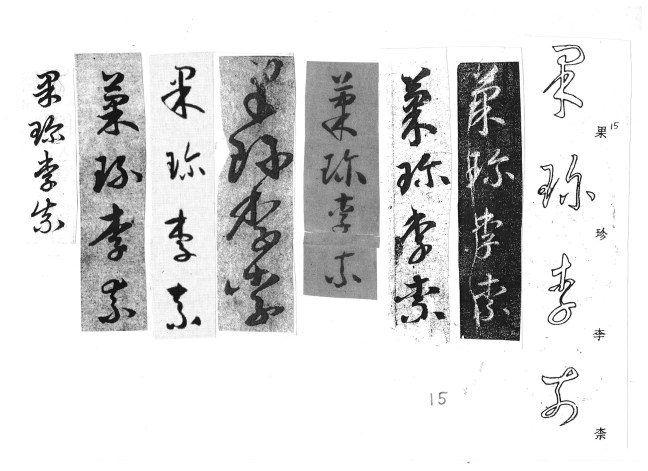 果珍李柰
15
果珍李柰
菓珍李柰
菓珍李柰
菓珍李柰
果珍李柰
果珍李柰
菓珍李柰
果珍李柰
15